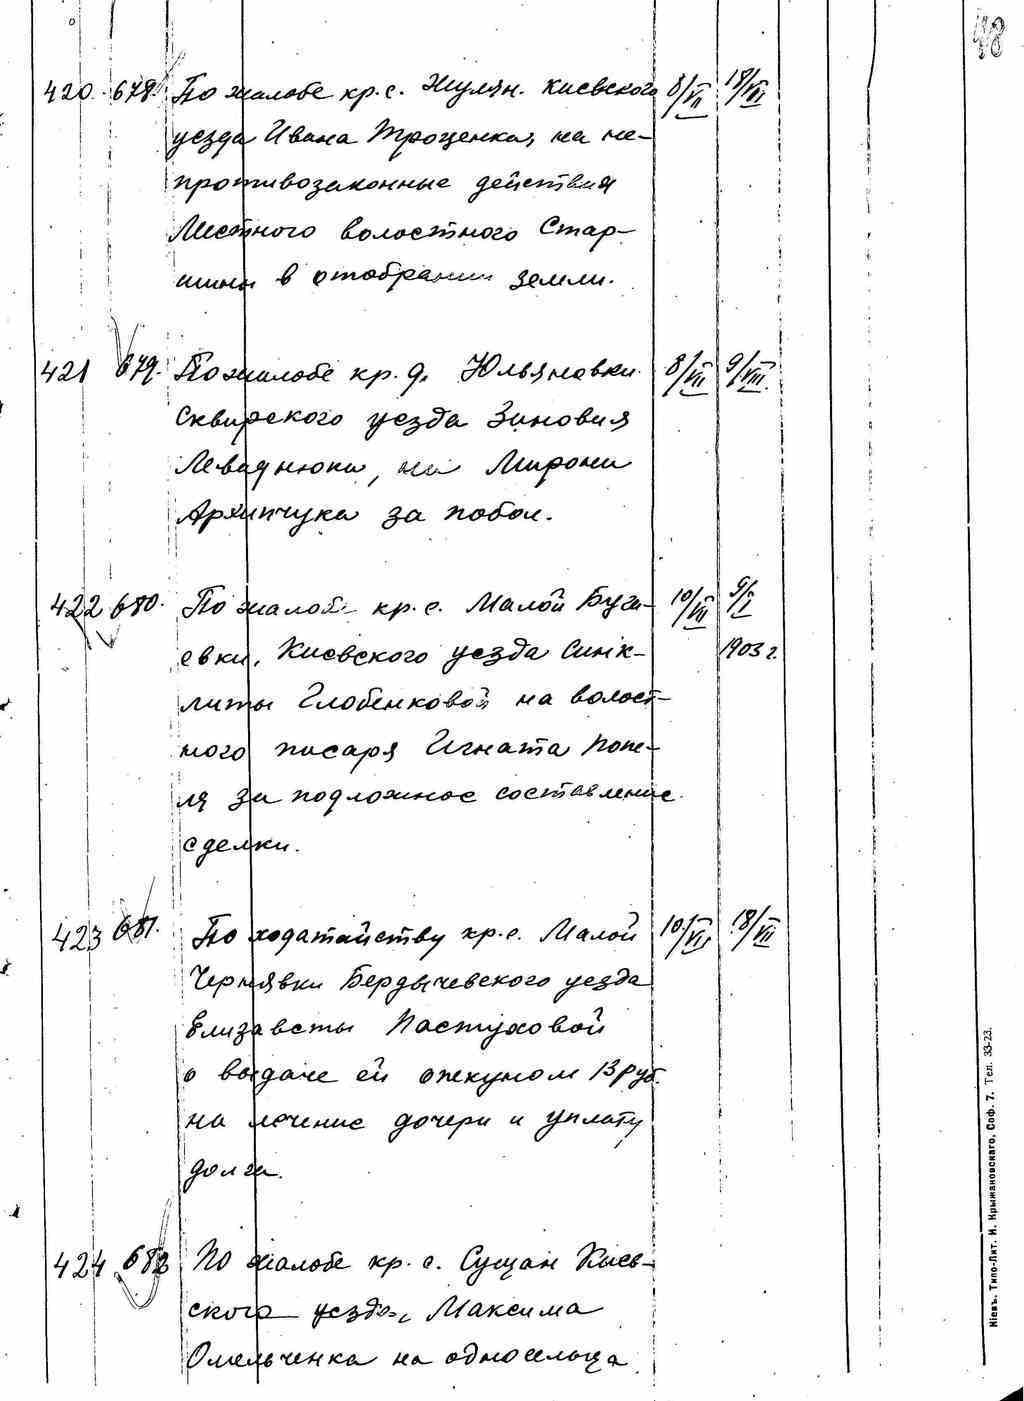 48
420. 678. По жалобе кр. с. Жулян. Киевского 8/VII 18/VII
уезда Ивана Троценка, на не-
противозаконные действия
Местного волостного Стар-
шины в отобрании земли.
421 679. По жалобе кр. д. Юльяновки 8/VII 9/VIII.
Сквирского уезда Зиновия
Леваднюка, на Мирона
Архипчука за побои.
422 680. По жалобе кр. с. Малой Буга- 10/VII 9/I
евки, Киевского уезда Синк- 1903 г.
литы Глобенковой на волост-
ного писаря Игната Попе-
ля за подложное составление
сделки.
423 681. По ходатайству кр. с. Малой 10/VII 18/VII
Чернявки Бердычевского уезда
Елизаветы Пастуховой
о выдаче ей опекуном 13 руб.
на лечение дочери и уплату
долга.
424 682 По жалобе кр. с. Сущан Киев-
ского уезда, Максима
Омельченка на односельца
Кіевъ. Типо-Лит. И. Крыжановскаго, Соф. 7. Тел. 33-23.